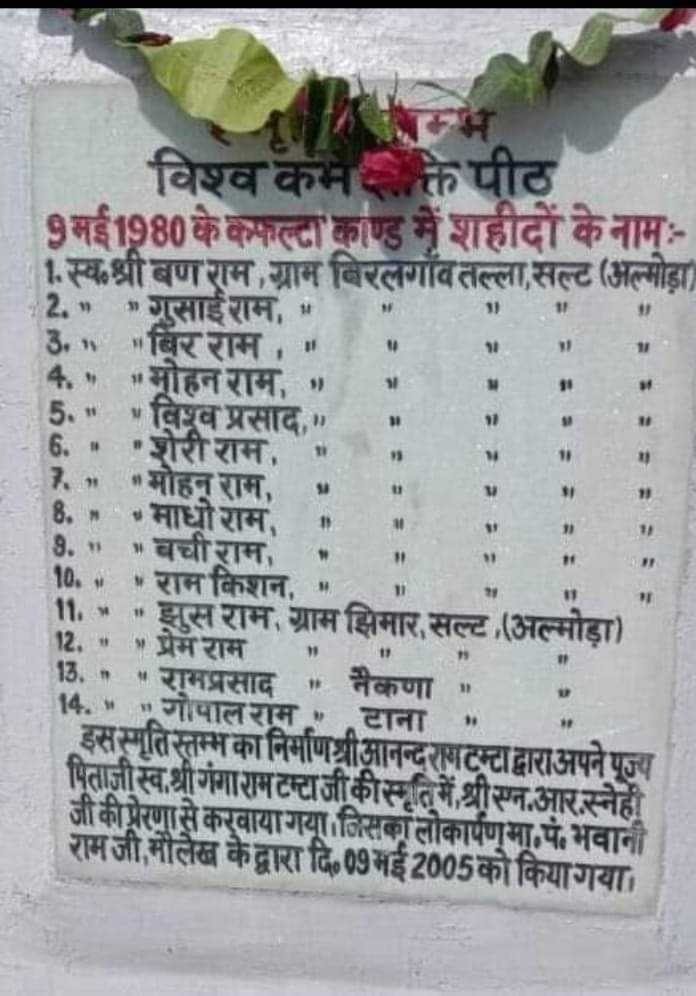 विश्व कर्म क्ति पीठ
9 मई 1980 के कफल्टा काण्ड में शहीदों के नाम:-
1. स्व. श्री बण राम, ग्राम बिरलगाँव तल्ला, सल्ट (अल्मोड़ा)
2. " " गुसाई राम, " " " " "
3. " " बिर राम, " " " " "
4. " " मोहन राम, " " " " "
5. " " विश्व प्रसाद, " " " " "
6. " " शेरी राम, " " " " "
7. " " मोहन राम, " " " " "
8. " " माधो राम, " " " " "
9. " " बची राम, " " " " "
10. " " राम किशन, " " " " "
11. " " झुस राम, ग्राम झिमार, सल्ट, (अल्मोड़ा)
12. " " प्रेम राम " " " "
13. " " रामप्रसाद " नैकणा " "
14. " " गोपाल राम " टाना " "
इस स्मृति स्तम्भ का निर्माण श्री आनन्द राम टम्टा द्वारा अपने पूज्य
पिताजी स्व. श्री गंगा राम टम्टा जी की स्मृति में, श्री एन. आर. स्नेही
जी की प्रेरणा से करवाया गया। जिसका लोकार्पण मा. पं. भवानी
राम जी, मौलेख के द्वारा दि. 09 मई 2005 को किया गया।